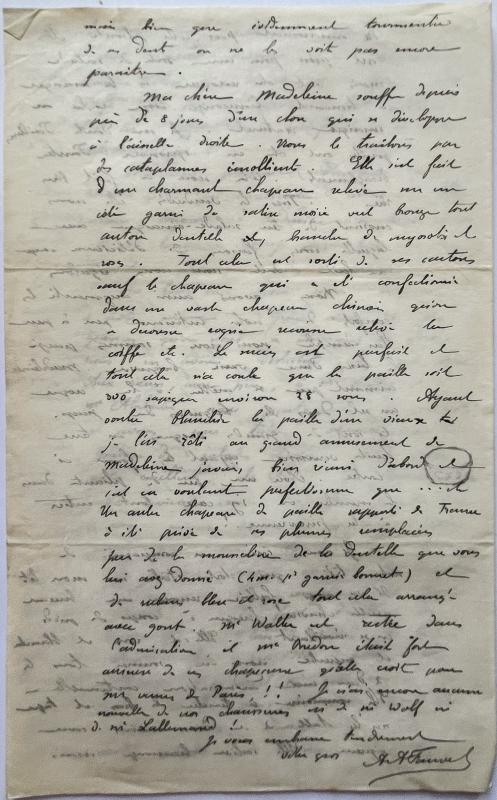 mais bien que évidemment tourmentée
de ses dents on ne les voit pas encore
paraître.
Ma chère Madeleine souffre depuis
près de 8 jours d'un clou qui se développe
à l'aisselle droite. Nous le traitons par
des cataplasmes émollients. Elle s'est fait
d'un charmant chapeau relevé sur un
côté garni de satin moiré vert bronze tout
autour dentelle et branche de myosotis et
roses. Tout cela est sorti de ses cartons
sauf le chapeau qui a été confectionné
dans un vaste chapeau chinois qu'on
a décousu rogné recousu relevé la
coiffe etc. Le succès est parfait et
tout cela n'a coûté que la paille soit
300 sapèques environ 28 sous. Ayant
voulu blanchir la paille d'un vieux
je l'ai rôti au grand amusement de
Madeleine j'avais bien réussi d'abord et
c'est en voulant perfectionner que ... et
Un autre chapeau de paille rapporté de France
a été privé de ses plumes remplacées
par de la mousseline de la dentelle que vous
lui avez donnée (4 mos pr garnir bonnet) et
de rubans bleu et rose tout cela arrangé
avec goût. Me Walter est restée dans
l'admiration et me était fort
de ces chapeaux qu'elle croit pour
venus de Paris!! Je n'ai encore aucune
nouvelle de nos chaussures ni de mr Wolf ni
de mr Lallemand!
Je vous embrasse tendrement
votre gros A. A. Fauvel